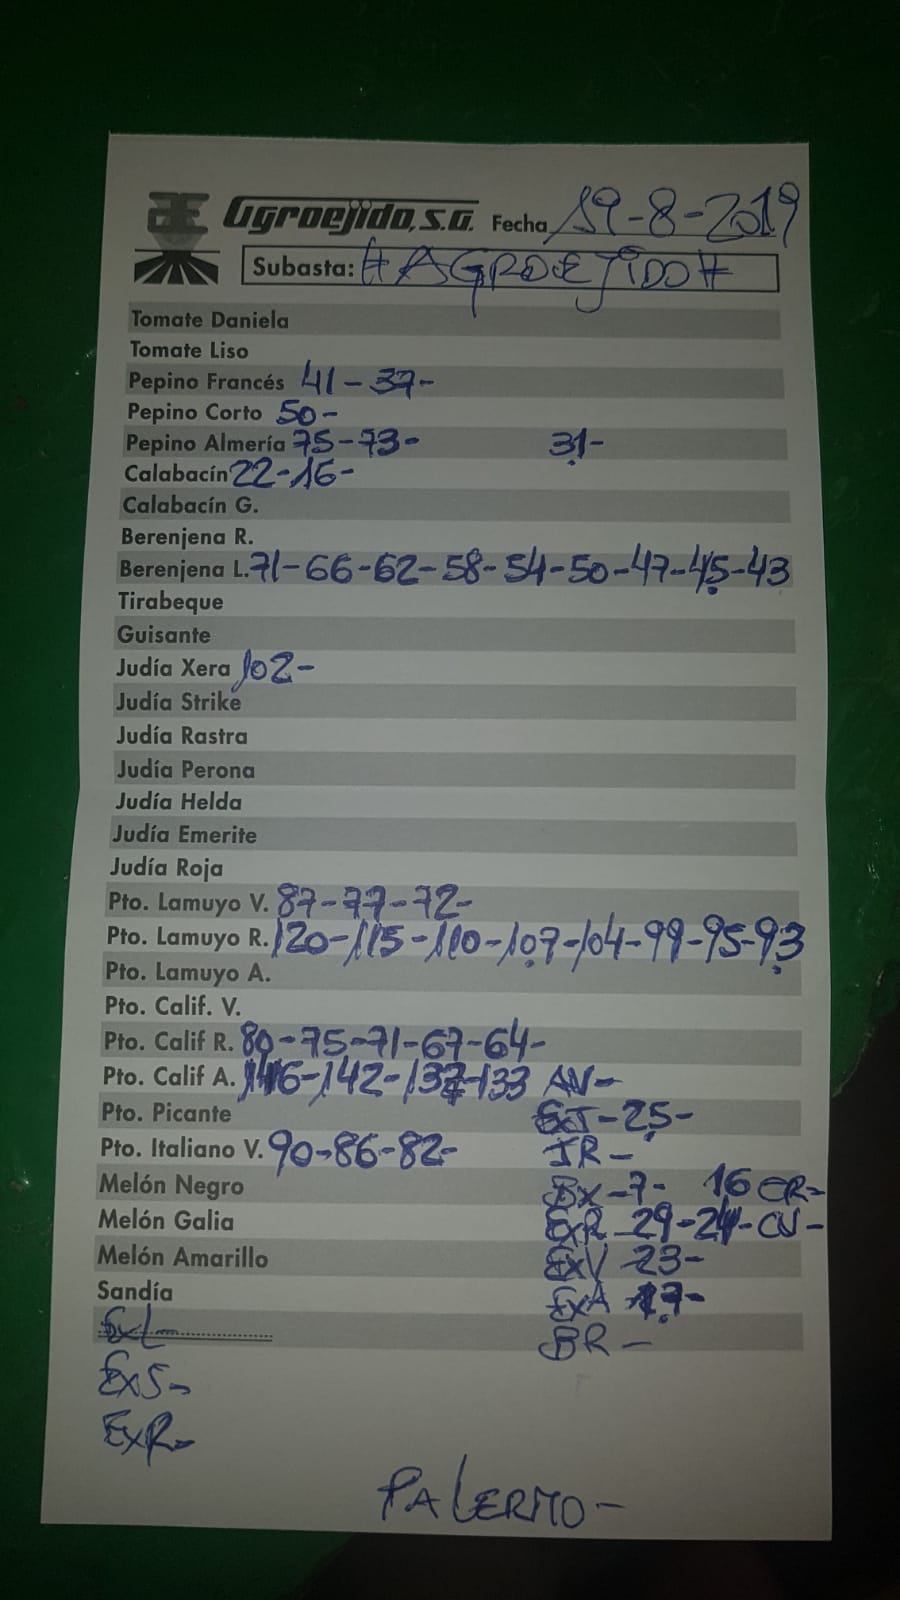 Agroejido, S.A. Fecha 19-8-2019
Subasta: #AGROEJIDO#
Tomate Daniela
Tomate Liso
Pepino Francés 41-37-
Pepino Corto 50-
Pepino Almería 75-73- 31-
Calabacín 22-16-
Calabacín G.
Berenjena R.
Berenjena L. 71-66-62-58-54-50-47-45-43
Tirabeque
Guisante
Judía Xera 102-
Judía Strike
Judía Rastra
Judía Perona
Judía Helda
Judía Emerite
Judía Roja
Pto. Lamuyo V. 87-77-72-
Pto. Lamuyo R. 120-115-110-107-104-99-95-93
Pto. Lamuyo A.
Pto. Calif. V.
Pto. Calif R. 80-75-71-67-64-
Pto. Calif A. 146-142-137-133 AN-
Pto. Picante ExT-25-
Pto. Italiano V. 90-86-82- JR-
Melón Negro Bx-7- 16 CR-
Melón Galia ExR 29-24- CV-
Melón Amarillo ExV 23-
Sandía ExA 17-
ExL- BR-
ExS-
ExR-
PALERMO-